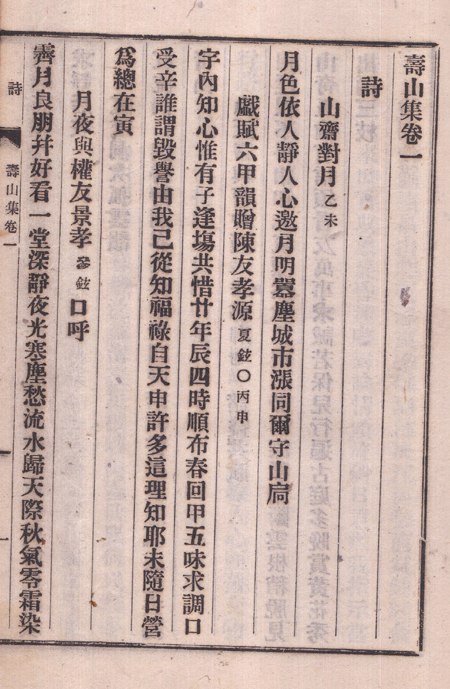 壽山集卷一
詩
山齋對月 乙未
月色依人靜人心邀月明囂塵城市漲同爾守山扃
戱賦六甲韻贈陳友孝源 夏鉉○丙申
宇內知心惟有子逢塲共惜廿年辰四時順布春回甲五味求調口
受辛誰謂毀譽由我己從知福祿自天申許多這理知耶未隨日營
爲總在寅
月夜與權友景孝 參鉉 口呼
霽月良朋幷好看一堂深靜夜光寒塵愁流水歸天際秋氣零霜染
詩
壽山集卷一